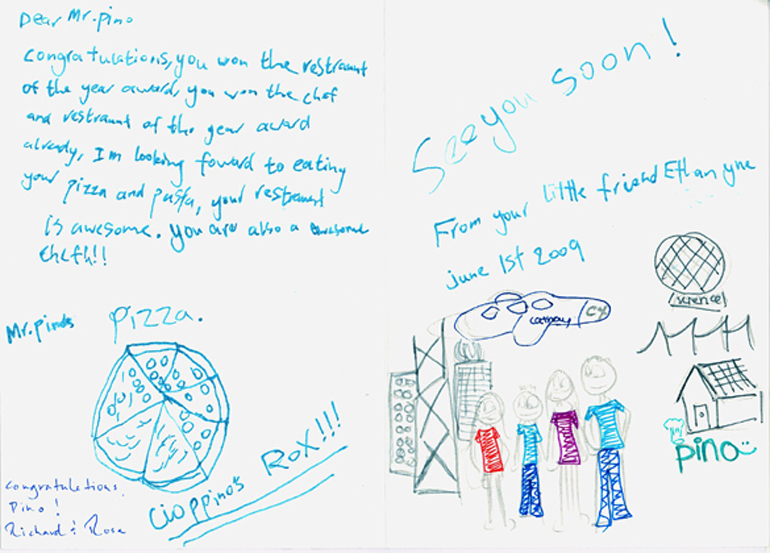 Dear Mr.pino
Congratulations, you won the restraunt
of the year award, you won the chef
and restraunt of the year award
already, I'm looking foward to eating
your pizza and pasta, your restraunt
is awesome. you are also a awesome
chefh!!
Mr.pinos Pizza.
Cioppino's RoX!!!
Congratulations
Pino!
Richard & Rose
See you soon!
From your little friend Ethan yne
june 1st 2009
cathay CX
science
pino